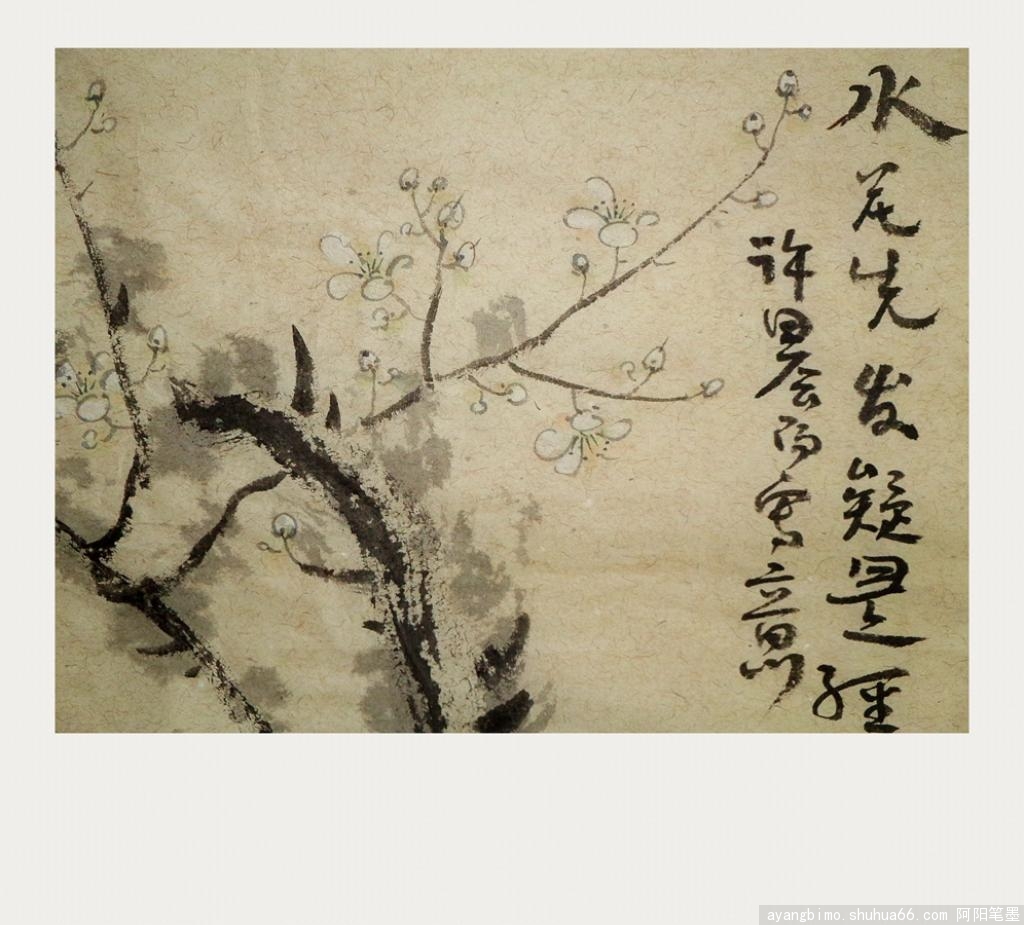 水花先发疑是經
许 会 写意
ayangbimo.shuhua66.com 阿阳笔墨